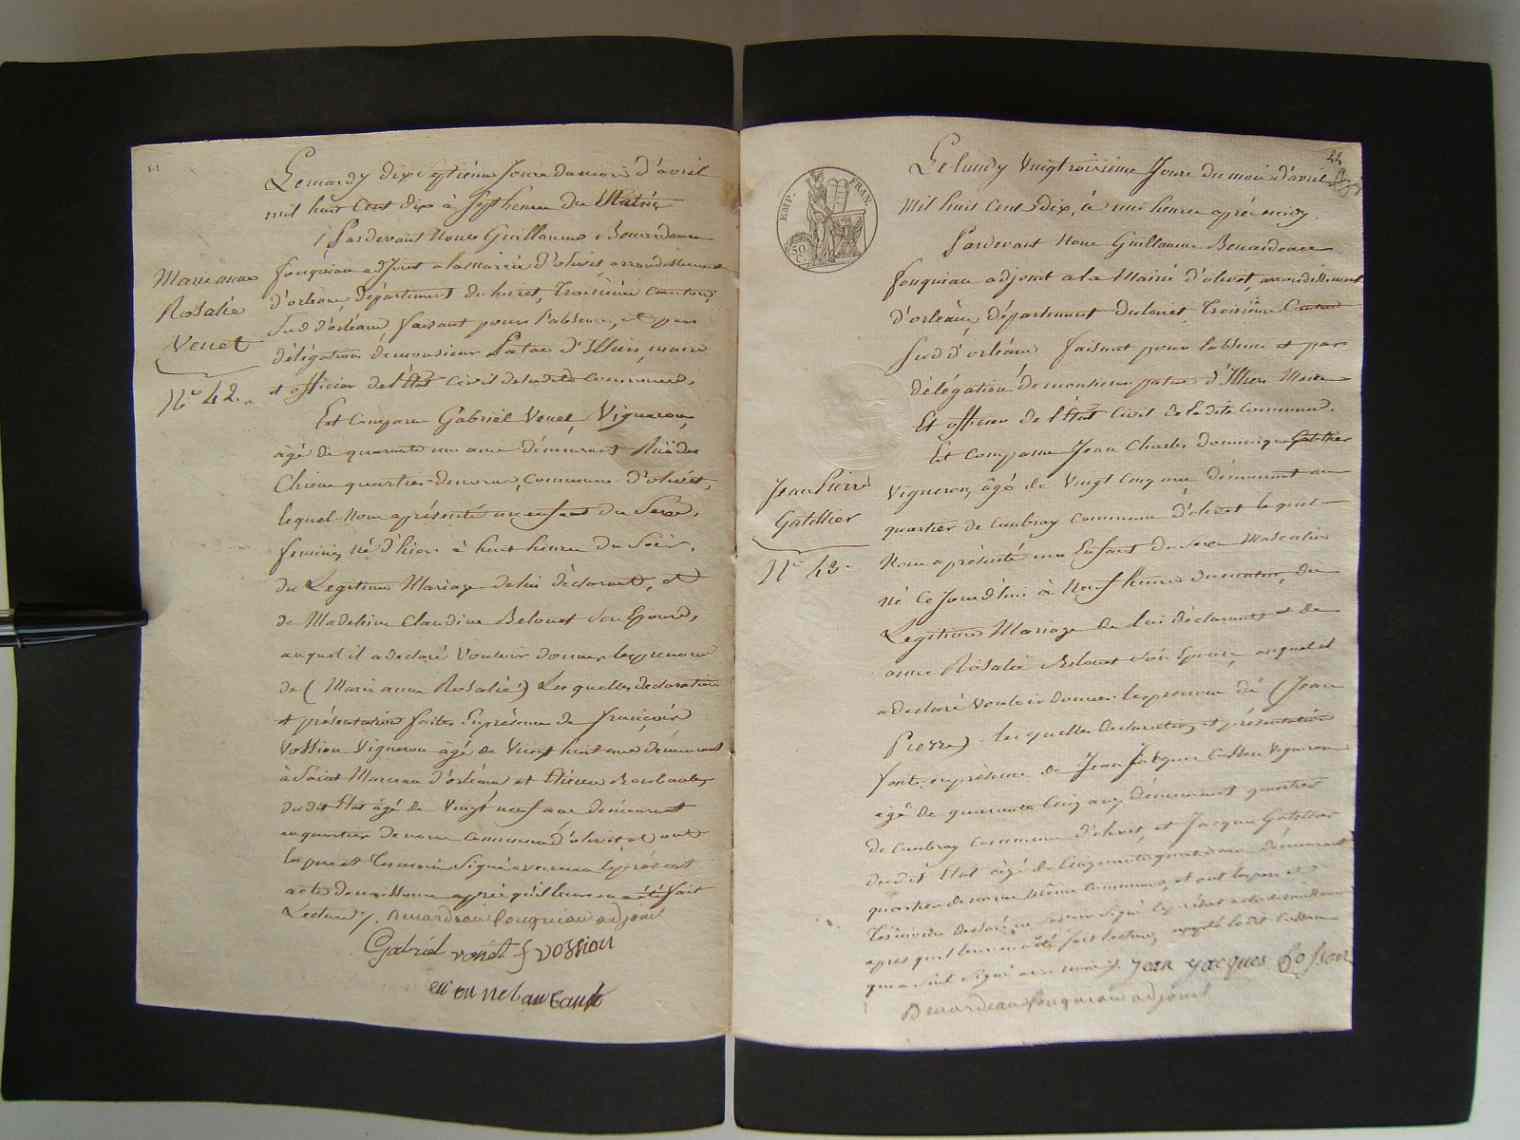 Le mardy dix septième Jour du mois d'avril
mil huit Cent dix à Sept heures du Matin
Pardevant Nous Guillaume Benardeau
fouqueau adjoint a la Mairie d'olivet, arrondissement
d'orléans, Département du loiret, Troisième Canton
Sud d'orléans, faisant pour l'absence, et par
délégation de monsieur Patas d'Illiers, maire
et officier de l'État Civil de ladite Commune.
Marie anne
Rosalie
Venet
N.º 42.
Est Comparu Gabriel Venet, Vigneron,
âgé de quarante un ans demeurant Rue des
Chiens quartier de nous, Commune d'olivet,
lequel Nous a présenté un enfant du Sexe
feminin, né d'hier à huit heures du Soir,
du Legitime Mariage de lui déclarant, et
de Madeleine Claudine Belouet Son Epouse,
auquel il a declaré Vouloir donner les prenoms
de (Marie anne Rosalie) Lesquelles declaration
et présentation faites En présence de françois
Vossion Vigneron âgé de Vingt huit ans demeurant
à Saint Marceau d'orléans et Etienne Rebaubs
du dit Etat âgé de Vingt neuf ans demeurant
au quartier de nous Commune d'olivet et ont
les pere et Temoins Signé avec nous le présent
acte de naissance après qu'il leur en a été fait
Lecture. Benardeau fouqueau adjoint
Gabriel venet f vossion
44
EMP. FRAN.
50
Le lundy Vingt troisième Jour du mois d'avril
Mil huit Cent Dix, à une heure après midy.
Pardevant Nous Guillaume Benardeau
fouqueau adjoint a la Mairie d'olivet, arrondissement
d'orléans, département du loiret, Troisième Canton
Sud d'orléans faisant pour l'absence et par
délégation de monsieur patas d'Illiers Maire
Et officier de l'État Civil de la dite Commune.
Est Comparu Jean Charles Dominique Gatellier
Jean Pierre
Gatellier
N.º 43.
Vigneron, âgé de Vingt Cinq ans demeurant au
quartier de Cambray Commune d'olivet lequel
Nous a présenté un Enfant du Sexe Masculin
né Ce Jourd'hui à Neuf heures du matin, du
Legitime Mariage de lui déclarant, et de
anne Rosalie Belouet Son Epouse, auquel il
a declaré Vouloir donner les prenoms de (Jean
Pierre) lesquelles declaration et présentation
faite en présence de Jean Jacques Cosson Vigneron
âgé de quarante Cinq ans, demeurant quartier
de Cambray Commune d'olivet, et Jacques Gatellier
du dit Etat âgé de Cinquante quatre ans demeurant
quartier de nous même Commune, et ont les pere et
Témoins declaré ne Savoir Signé le présent acte de naissance
après qu'il leur en a été fait lecture, excepté ledit Cosson
qui a Signé avec nous. Jean Jacques Cosson
Benardeau fouqueau adjoint